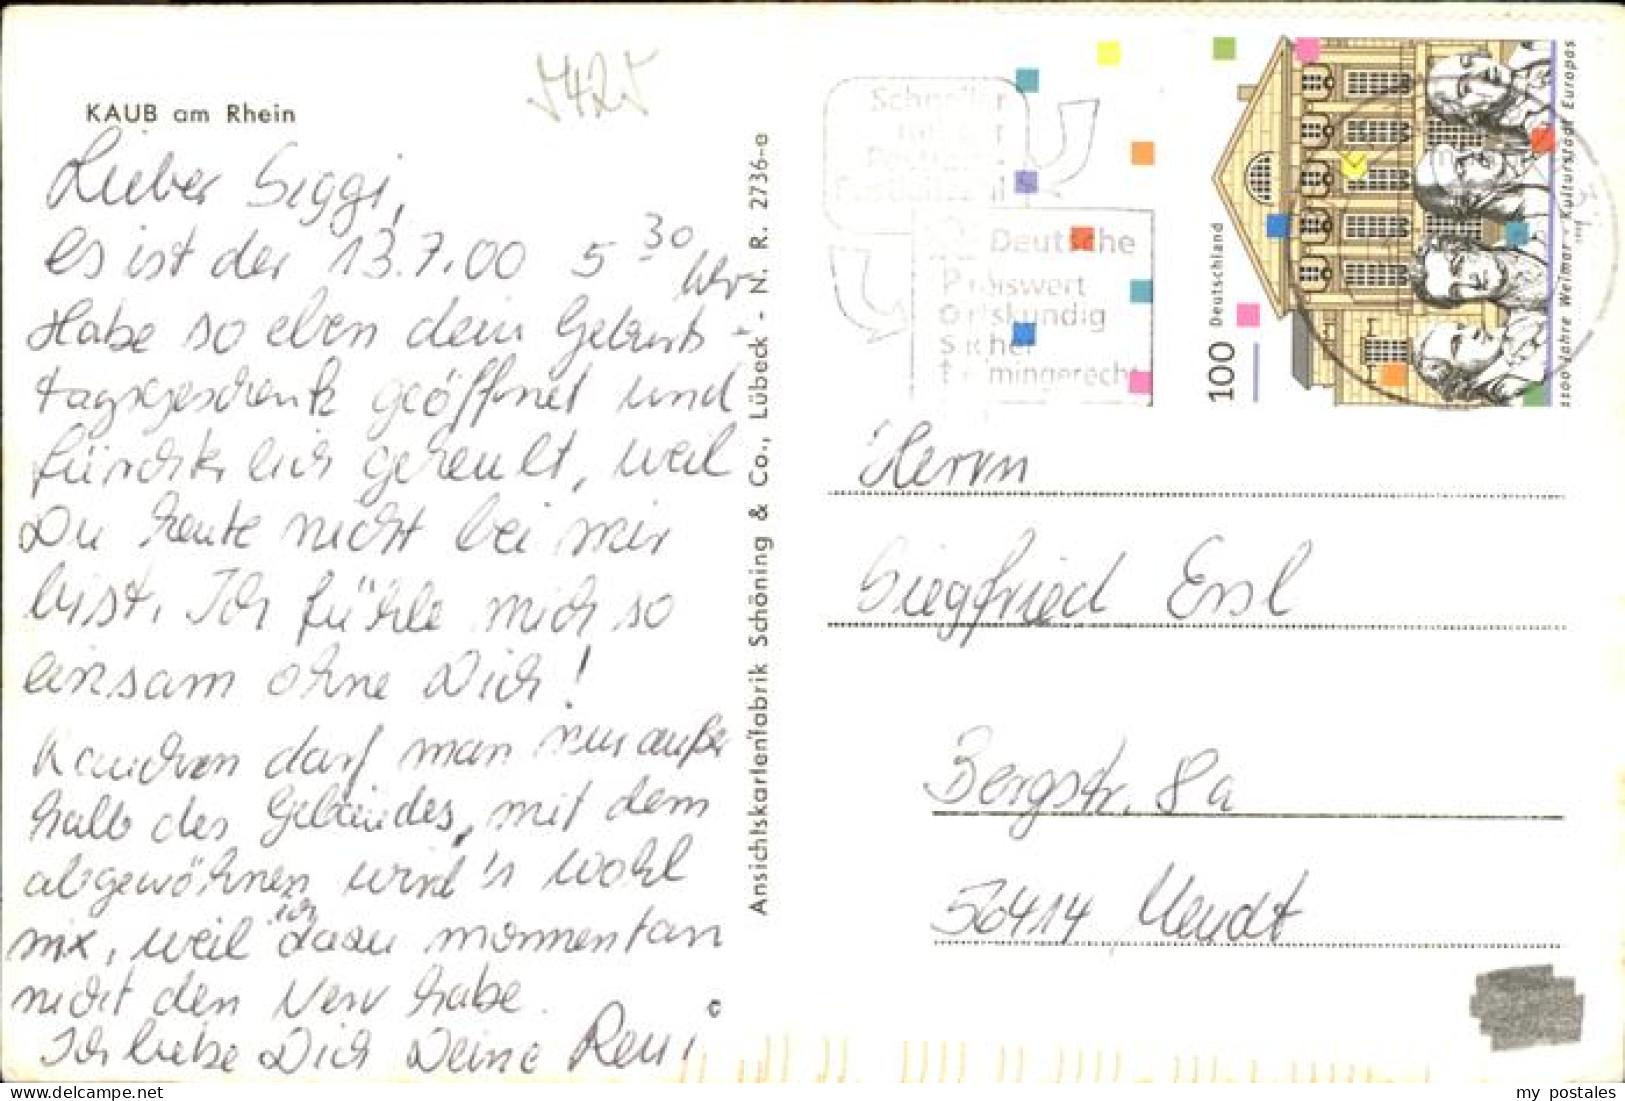 KAUB am Rhein
5425
Lieber Siggi,
es ist der 13.7.00 5 30 Uhr
Habe so eben dein Geburts-
tagsgeschenk geöffnet und
fürchterlich geheult, weil
Du heute nicht bei mir
bist. Ich fühle mich so
einsam ohne Dich!
Rauchen darf man nur außer
halb des Gebäudes, mit dem
abgewöhnen wird's wohl
nix, weil ich dazu momentan
nicht den Nerv habe.
Ich liebe Dich Deine Reni
Ansichtskartenfabrik Schöning & Co., Lübeck - N. R. 2736-e
Schneller
mit der
Postfach-
Postleitzahl
Deutsche
Preiswert
Ortskundig
Sicher
termingerecht
100 Deutschland
1100 Jahre Weimar - Kulturstadt Europas
Herrn
Siegfried
Bergstr. 8a
56414
my postales